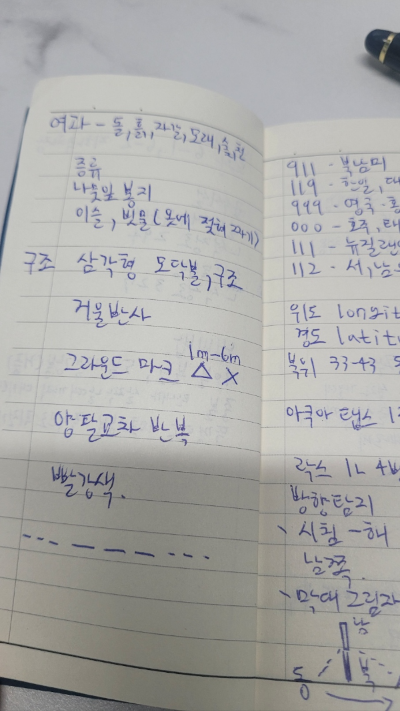 여과 - 돌, 흙, 자갈, 모래, 숯, 천
증류
나뭇잎 봉지
이슬, 빗물(옷에 적혀 짜기)
구조 삼각형 모닥불, 구조
거울반사
그라운드 마크 1m-6m △ X
양팔교차 반복
빨강색.
... --- ...
911 - 북남미
119 - 한일, 대
999 - 영국·홍
000 - 호주, 태
111 - 뉴질랜
112 - 서,남
위도 longit
경도 latit
북위 33-43
아쿠아 탭스 1
락스 1L 4방
방향탐지
、시침 - 해
남쪽.
、막대 그림자
남
북
5
0